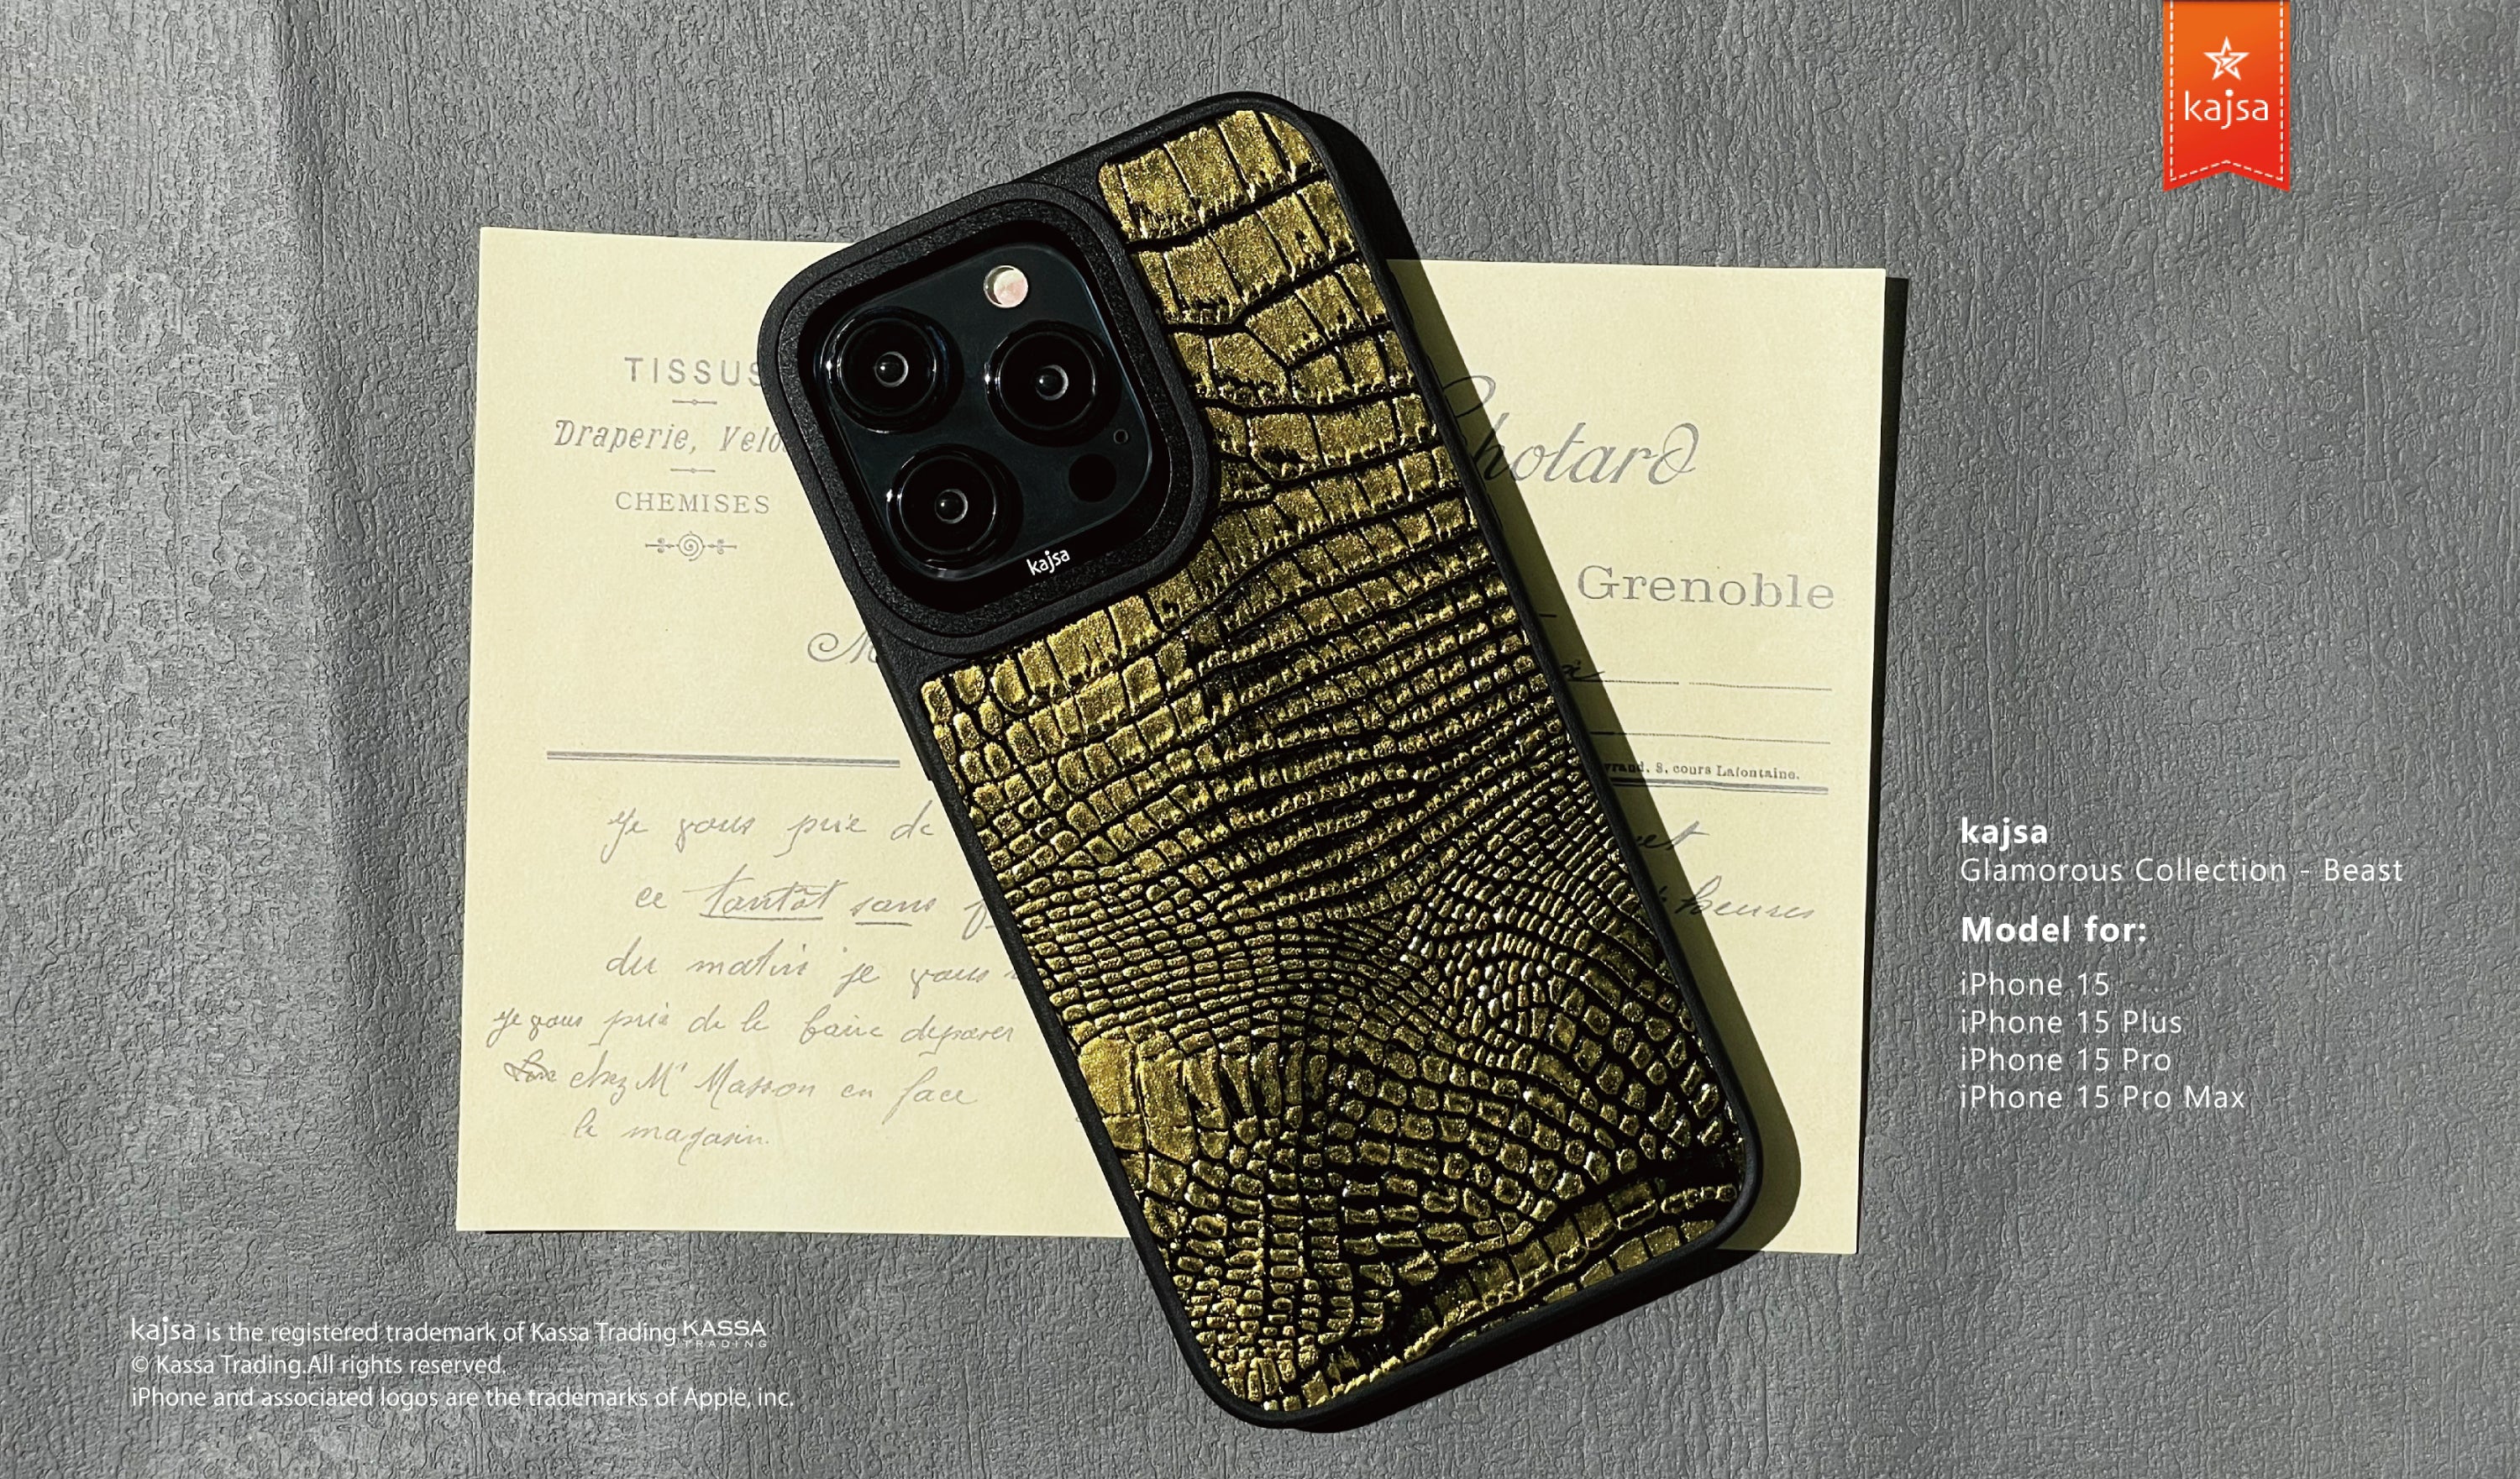 kajsa
TISSUS
Draperie, Velo
CHEMISES
hotard
Grenoble
kajsa
vraud, 8, cours Lafontaine.
Je vous prie de
ce tantôt sans
du matin je vous
heures
Je vous prie de le faire deposer
chez Mr Masson en face
le magasin.
kajsa
Glamorous Collection - Beast
Model for:
iPhone 15
iPhone 15 Plus
iPhone 15 Pro
iPhone 15 Pro Max
kajsa is the registered trademark of Kassa Trading KASSA TRADING
© Kassa Trading.All rights reserved.
iPhone and associated logos are the trademarks of Apple, inc.